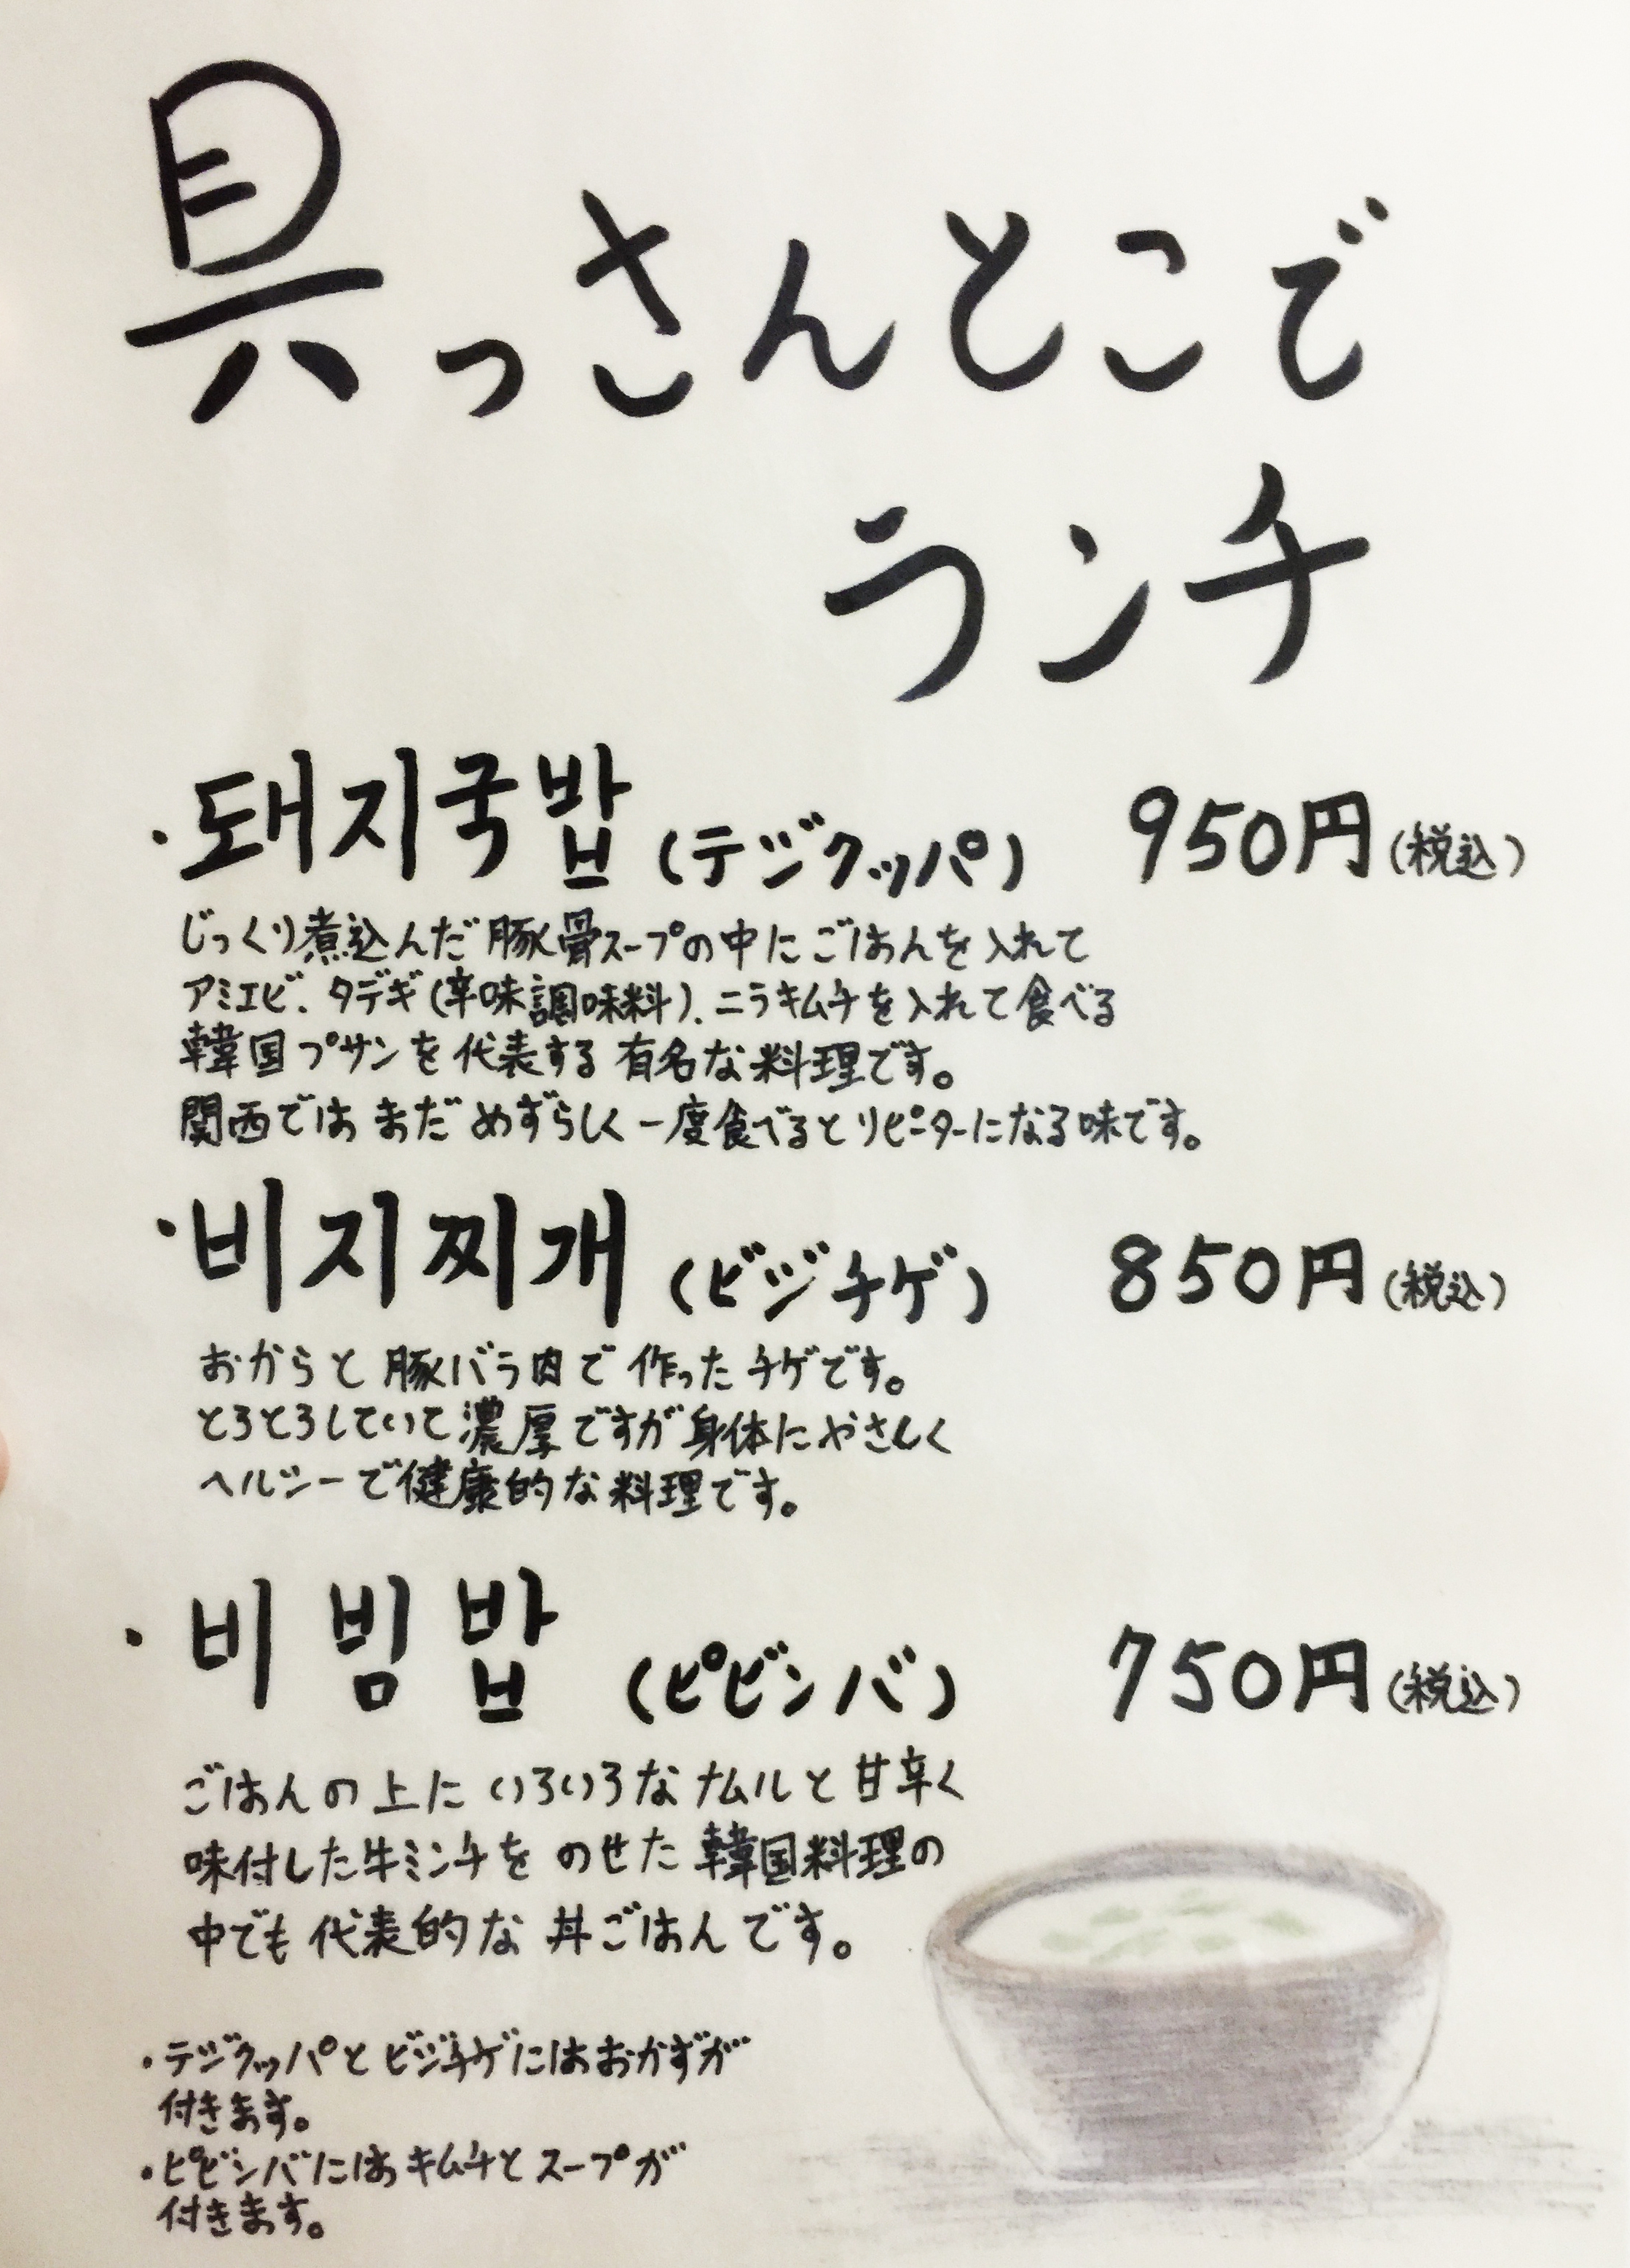 具っさんとこで
ランチ
・돼지국밥(テジクッパ) 950円(税込)
じっくり煮込んだ豚骨スープの中にごはんを入れて
アミエビ、タデギ(辛味調味料)、ニラキムチを入れて食べる
韓国プサンを代表する有名な料理です。
関西ではまだめずらしく一度食べるとリピーターになる味です。
・비지찌개(ビジチゲ) 850円(税込)
おからと豚バラ肉で作ったチゲです。
とろとろしていて濃厚ですが身体にやさしく
ヘルシーで健康的な料理です。
・비빔밥(ピビンバ) 750円(税込)
ごはんの上にいろいろなナムルと甘辛く
味付した牛ミンチをのせた韓国料理の
中でも代表的な丼ごはんです。
・テジクッパとビジチゲにはおかずが
付きます。
・ピビンバにはキムチとスープが
付きます。